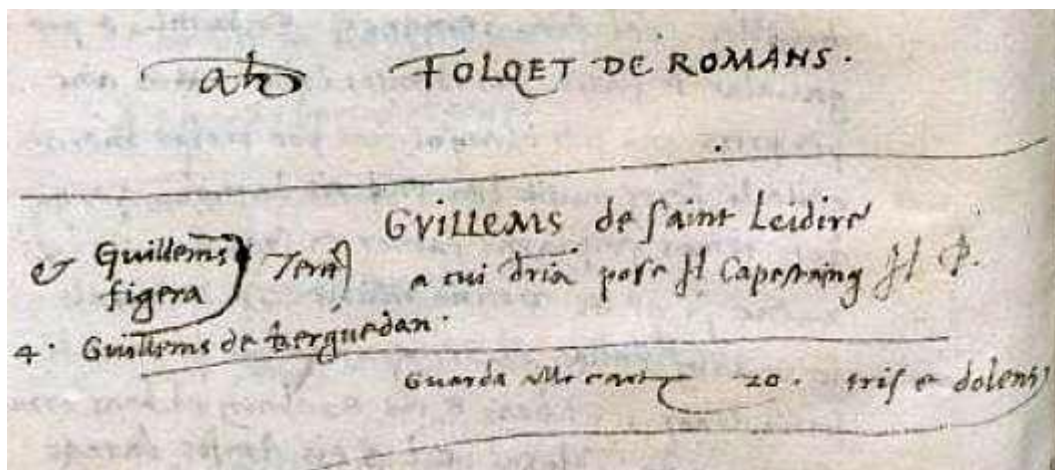 ab FOLQET DE ROMANS.
GVILLEMS de saint Leidire
& Guillems figera
a cui dria pose Il Capestaing Il P.
4. Guillems de berguedan.
Guarda alle cart 20. tris e dolens